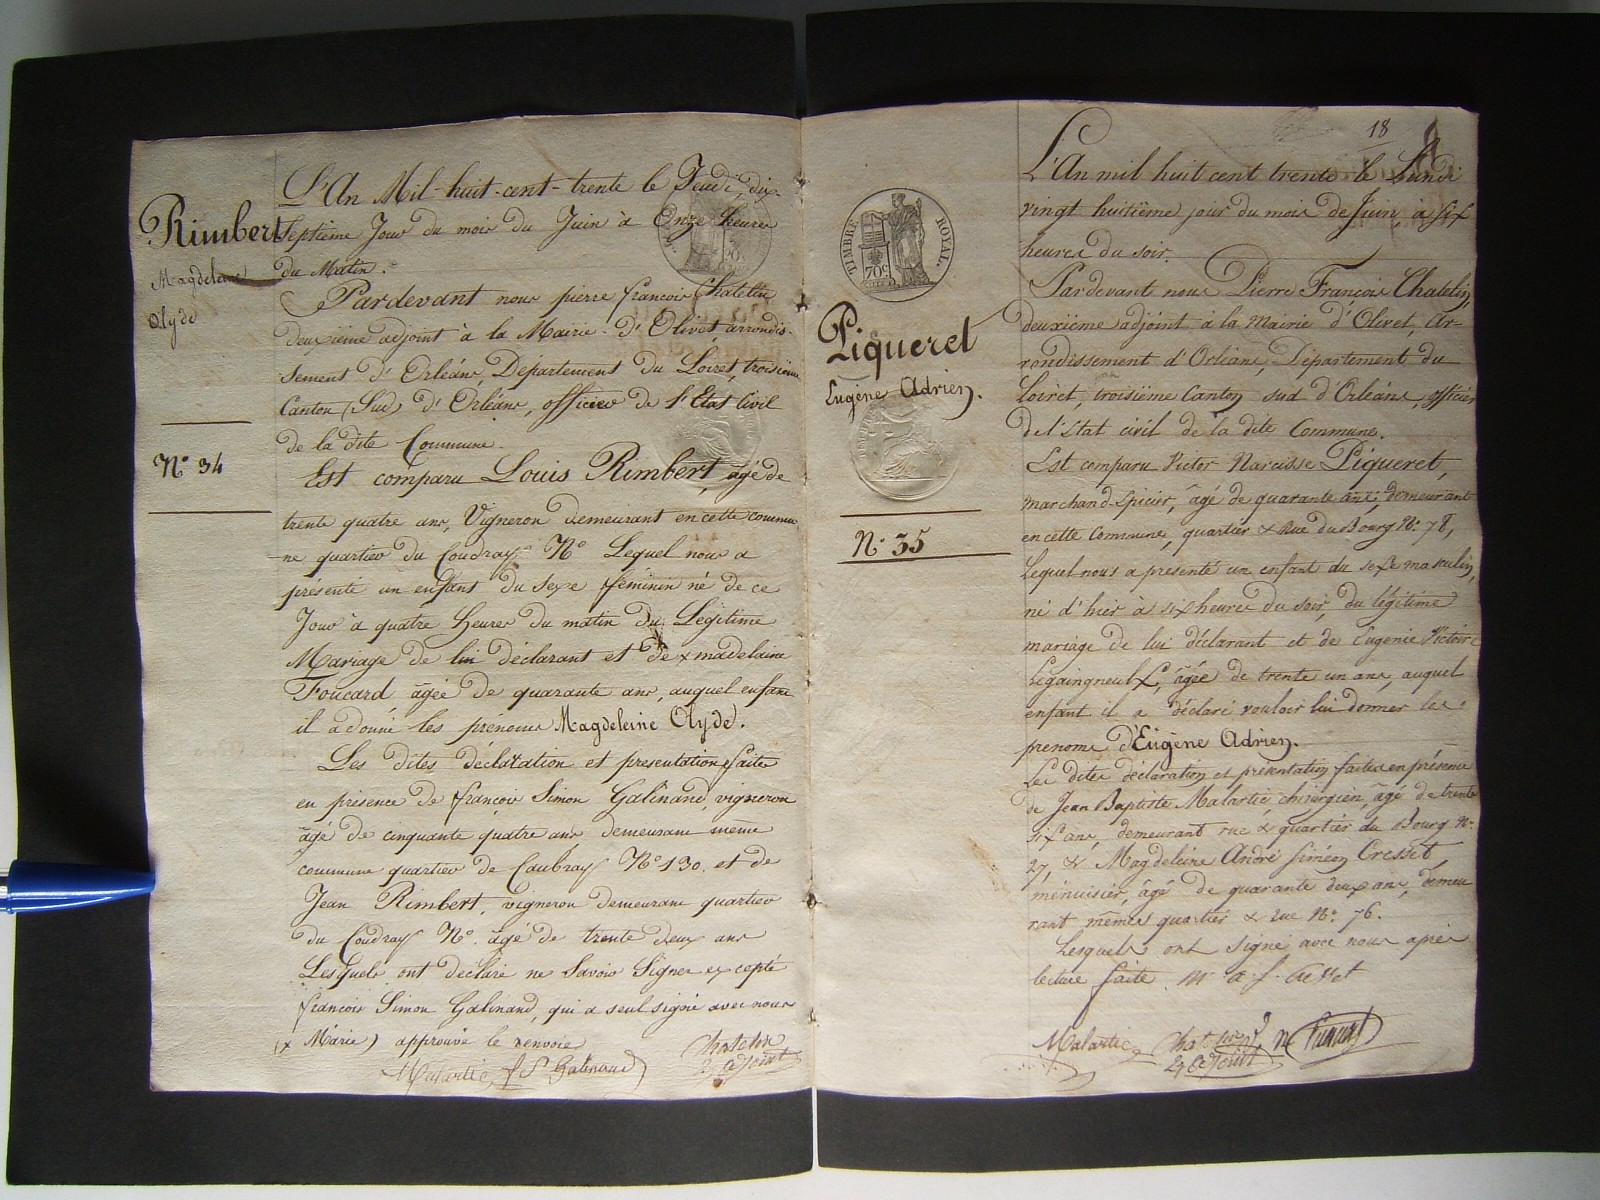 Rimbert
Magdeleine
Olyde
N.° 34
L'An Mil-huit-cent-trente le Jeudi, dix-
septième Jour du mois du Juin à Onze heures
du Matin.
Pardevant nous pierre françois Chatelin
deuxième adjoint à la Mairie d'Olivet, arrondis-
sement d'Orléans, Département du Loiret, troisieme
Canton (Sud) d'Orléans, officier de l'Etat Civil
de la dite Commune.
Est comparu Louis Rimbert, agé de
trente quatre ans, Vigneron demeurant en cette commu-
ne quartier du Coudray N.° Lequel nous a
présenté un enfant du sexe féminin né de ce
Jour à quatre Heures du matin du Légitime
Mariage de lui déclarant et de x madelaine
Foucard, âgée de quarante ans, auquel enfant
il a donné les prénoms Magdeleine Olyde.
Les dites déclaration et presentation faite
en présence de françois Simon Galinand, vigneron
âgé de cinquante quatre ans demeurant même
commune quartier de Caubray N.° 130. et de
Jean Rimbert, vigneron demeurant quartier
du Coudray N.° âgé de trente deux ans
Lesquels ont déclaré ne Savoir Signer excepté
françois Simon Galinand, qui a seul signé avec nous
(x Marie) approuvé le renvoie
Malartic f S Galinand
Chatelin
adjoint
18
TIMBRE ROYAL.
70c
Piqueret
Eugène Adrien.
N.° 35
L'An mil huit cent trente le Lundi
vingt huitième jour du mois de Juin, à six
heures du soir.
Pardevant nous Pierre François Chatelin,
deuxième adjoint à la Mairie d'Olivet, Ar-
rondissement d'Orléans, Département du
Loiret, troisième Canton sud d'Orléans, officier
de l'état civil de la dite Commune.
Est comparu Victor Narcisse Piqueret,
marchand-Epicier, âgé de quarante ans, demeurant
en cette Commune, quartier & Rue du Bourg N.° 78,
Lequel nous a présenté un enfant du sexe masculin,
né d'hier à six heures du soir, du légitime
mariage de lui déclarant et de Eugenie Victoire
Legaingneulx, âgée de trente un ans, auquel
enfant il a déclaré vouloir lui donner les
prenoms d'Eugène Adrien.
Les dites déclaration et présentation faites en présence
de Jean Baptiste Malartic, chirurgien, âgé de trente
six ans, demeurant rue & quartier du Bourg N.°
27, & Magdeleine André Siméon Cresset,
menuisier, âgé de quarante deux ans, demeu
rant mêmes quartier & rue N.° 76.
Lesquels ont signé avec nous après
lecture faite. M a f. Cresset
Malartic Chatelin n Piqueret
adjoint